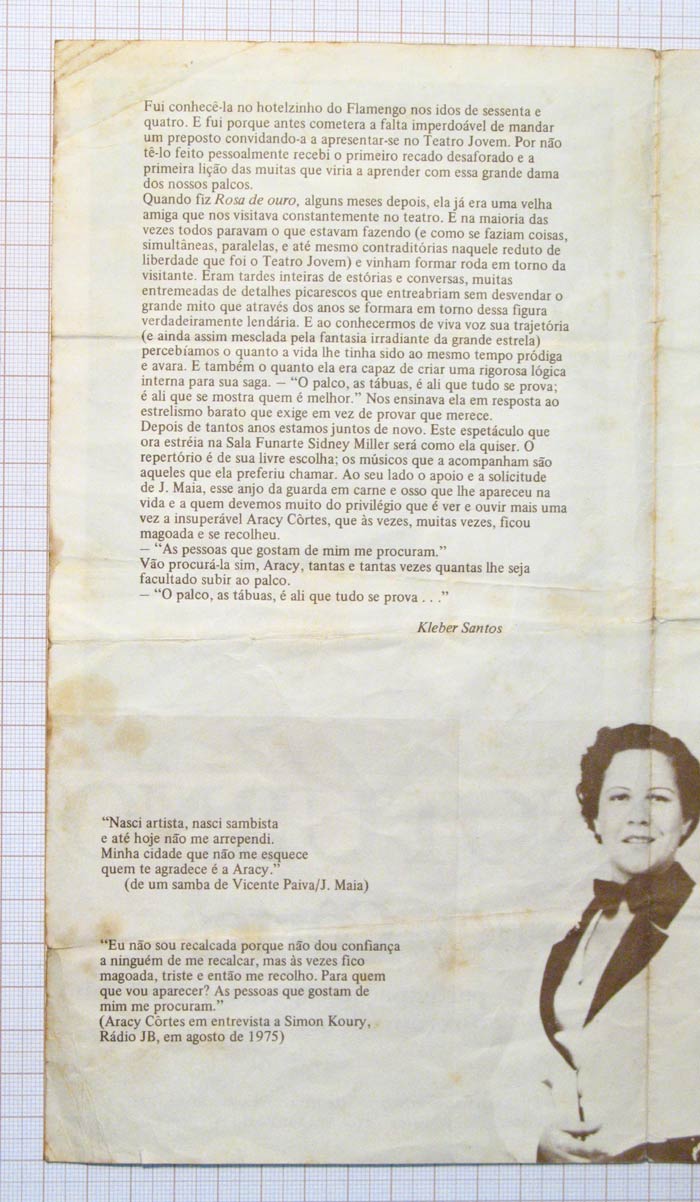 Fui conhecê-la no hotelzinho do Flamengo nos idos de sessenta e
quatro. E fui porque antes cometera a falta imperdoável de mandar
um preposto convidando-a a apresentar-se no Teatro Jovem. Por não
tê-lo feito pessoalmente recebi o primeiro recado desaforado e a
primeira lição das muitas que viria a aprender com essa grande dama
dos nossos palcos.
Quando fiz Rosa de ouro, alguns meses depois, ela já era uma velha
amiga que nos visitava constantemente no teatro. E na maioria das
vezes todos paravam o que estavam fazendo (e como se faziam coisas,
simultâneas, paralelas, e até mesmo contraditórias naquele reduto de
liberdade que foi o Teatro Jovem) e vinham formar roda em torno da
visitante. Eram tardes inteiras de estórias e conversas, muitas
entremeadas de detalhes picarescos que entreabriam sem desvendar o
grande mito que através dos anos se formara em torno dessa figura
verdadeiramente lendária. E ao conhecermos de viva voz sua trajetória
(e ainda assim mesclada pela fantasia irradiante da grande estrela)
percebíamos o quanto a vida lhe tinha sido ao mesmo tempo pródiga
e avara. E também o quanto ela era capaz de criar uma rigorosa lógica
interna para sua saga. — “O palco, as tábuas, é ali que tudo se prova;
é ali que se mostra quem é melhor.” Nos ensinava ela em resposta ao
estrelismo barato que exige em vez de provar que merece.
Depois de tantos anos estamos juntos de novo. Este espetáculo que
ora estréia na Sala Funarte Sidney Miller será como ela quiser. O
repertório é de sua livre escolha; os músicos que a acompanham são
aqueles que ela preferiu chamar. Ao seu lado o apoio e a solicitude
de J. Maia, esse anjo da guarda em carne e osso que lhe apareceu na
vida e a quem devemos muito do privilégio que é ver e ouvir mais uma
vez a insuperável Aracy Côrtes, que às vezes, muitas vezes, ficou
magoada e se recolheu.
— “As pessoas que gostam de mim me procuram.”
Vão procurá-la sim, Aracy, tantas e tantas vezes quantas lhe seja
facultado subir ao palco.
— “O palco, as tábuas, é ali que tudo se prova . . .”
Kleber Santos
“Nasci artista, nasci sambista
e até hoje não me arrependi.
Minha cidade que não me esquece
quem te agradece é a Aracy.”
(de um samba de Vicente Paiva/J. Maia)
“Eu não sou recalcada porque não dou confiança
a ninguém de me recalcar, mas às vezes fico
magoada, triste e então me recolho. Para quem
que vou aparecer? As pessoas que gostam de
mim me procuram.”
(Aracy Côrtes em entrevista a Simon Koury,
Rádio JB, em agosto de 1975)